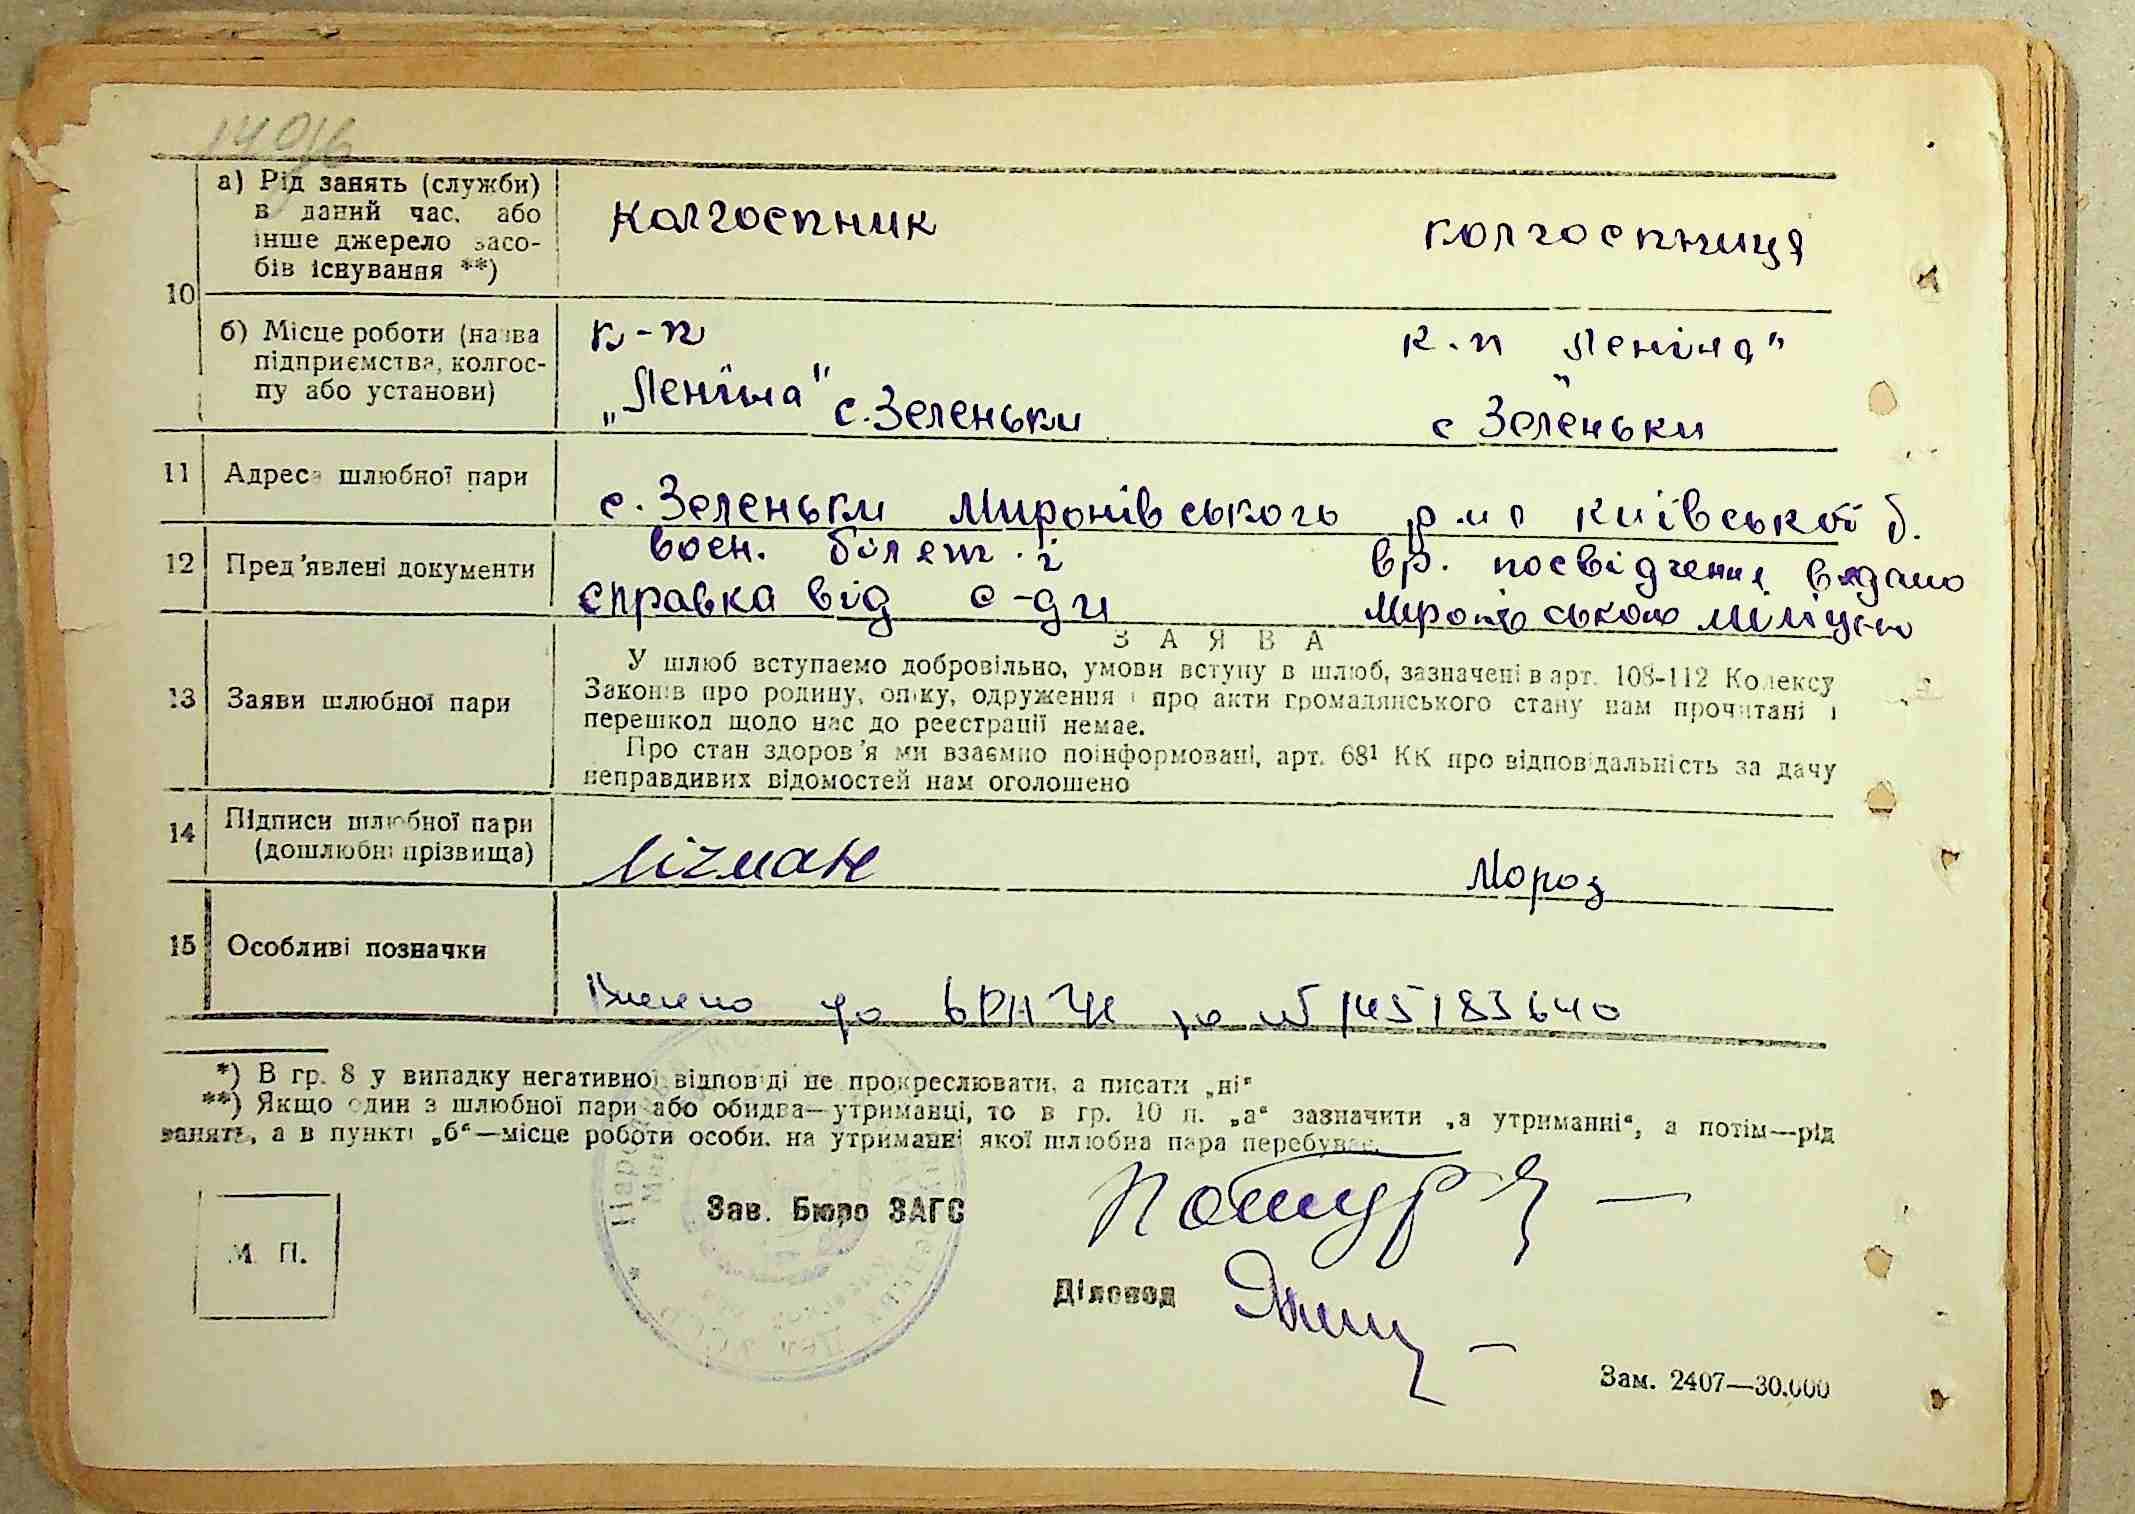 а) Рід занять (служби) в даний час, або інше джерело засо-
бів існування **)
колгоспник
колгоспниця
10
б) Місце роботи (назва
підприємства, колгос-
пу або установи)
к-п
„Леніна" с. Зеленьки
к-п „Леніна"
с Зеленьки
11 Адреса шлюбної пари
с. Зеленьки Миронівського р-ну Київської о.
12 Пред'явлені документи
воєн. білет і
справка від с-ди
вр. посвідчення видано
Миронівською міліцією
13 Заяви шлюбної пари
ЗАЯВА
У шлюб вступаємо добровільно, умови вступу в шлюб, зазначені в арт. 108-112 Кодексу
Законів про родину, опіку, одруження і про акти громадянського стану нам прочитані і
перешкод щодо нас до реєстрації немає.
Про стан здоров'я ми взаємно поінформовані, арт. 68¹ КК про відповідальність за дачу
неправдивих відомостей нам оголошено
14 Підписи шлюбної пари
(дошлюбні прізвища)
Лігман
Мороз
15 Особливі позначки
Внесено до за № 145183640
*) В гр. 8 у випадку негативної відповіді не прокреслювати, а писати „ні"
**) Якщо один з шлюбної пари або обидва—утриманці, то в гр. 10 п. „а" зазначити „а утриманні", а потім—рід
занять, а в пункті „б"—місце роботи особи, на утриманні якої шлюбна пара перебуває.
М. П.
Зав. Бюро ЗАГС
Діловод
Зам. 2407—30.000